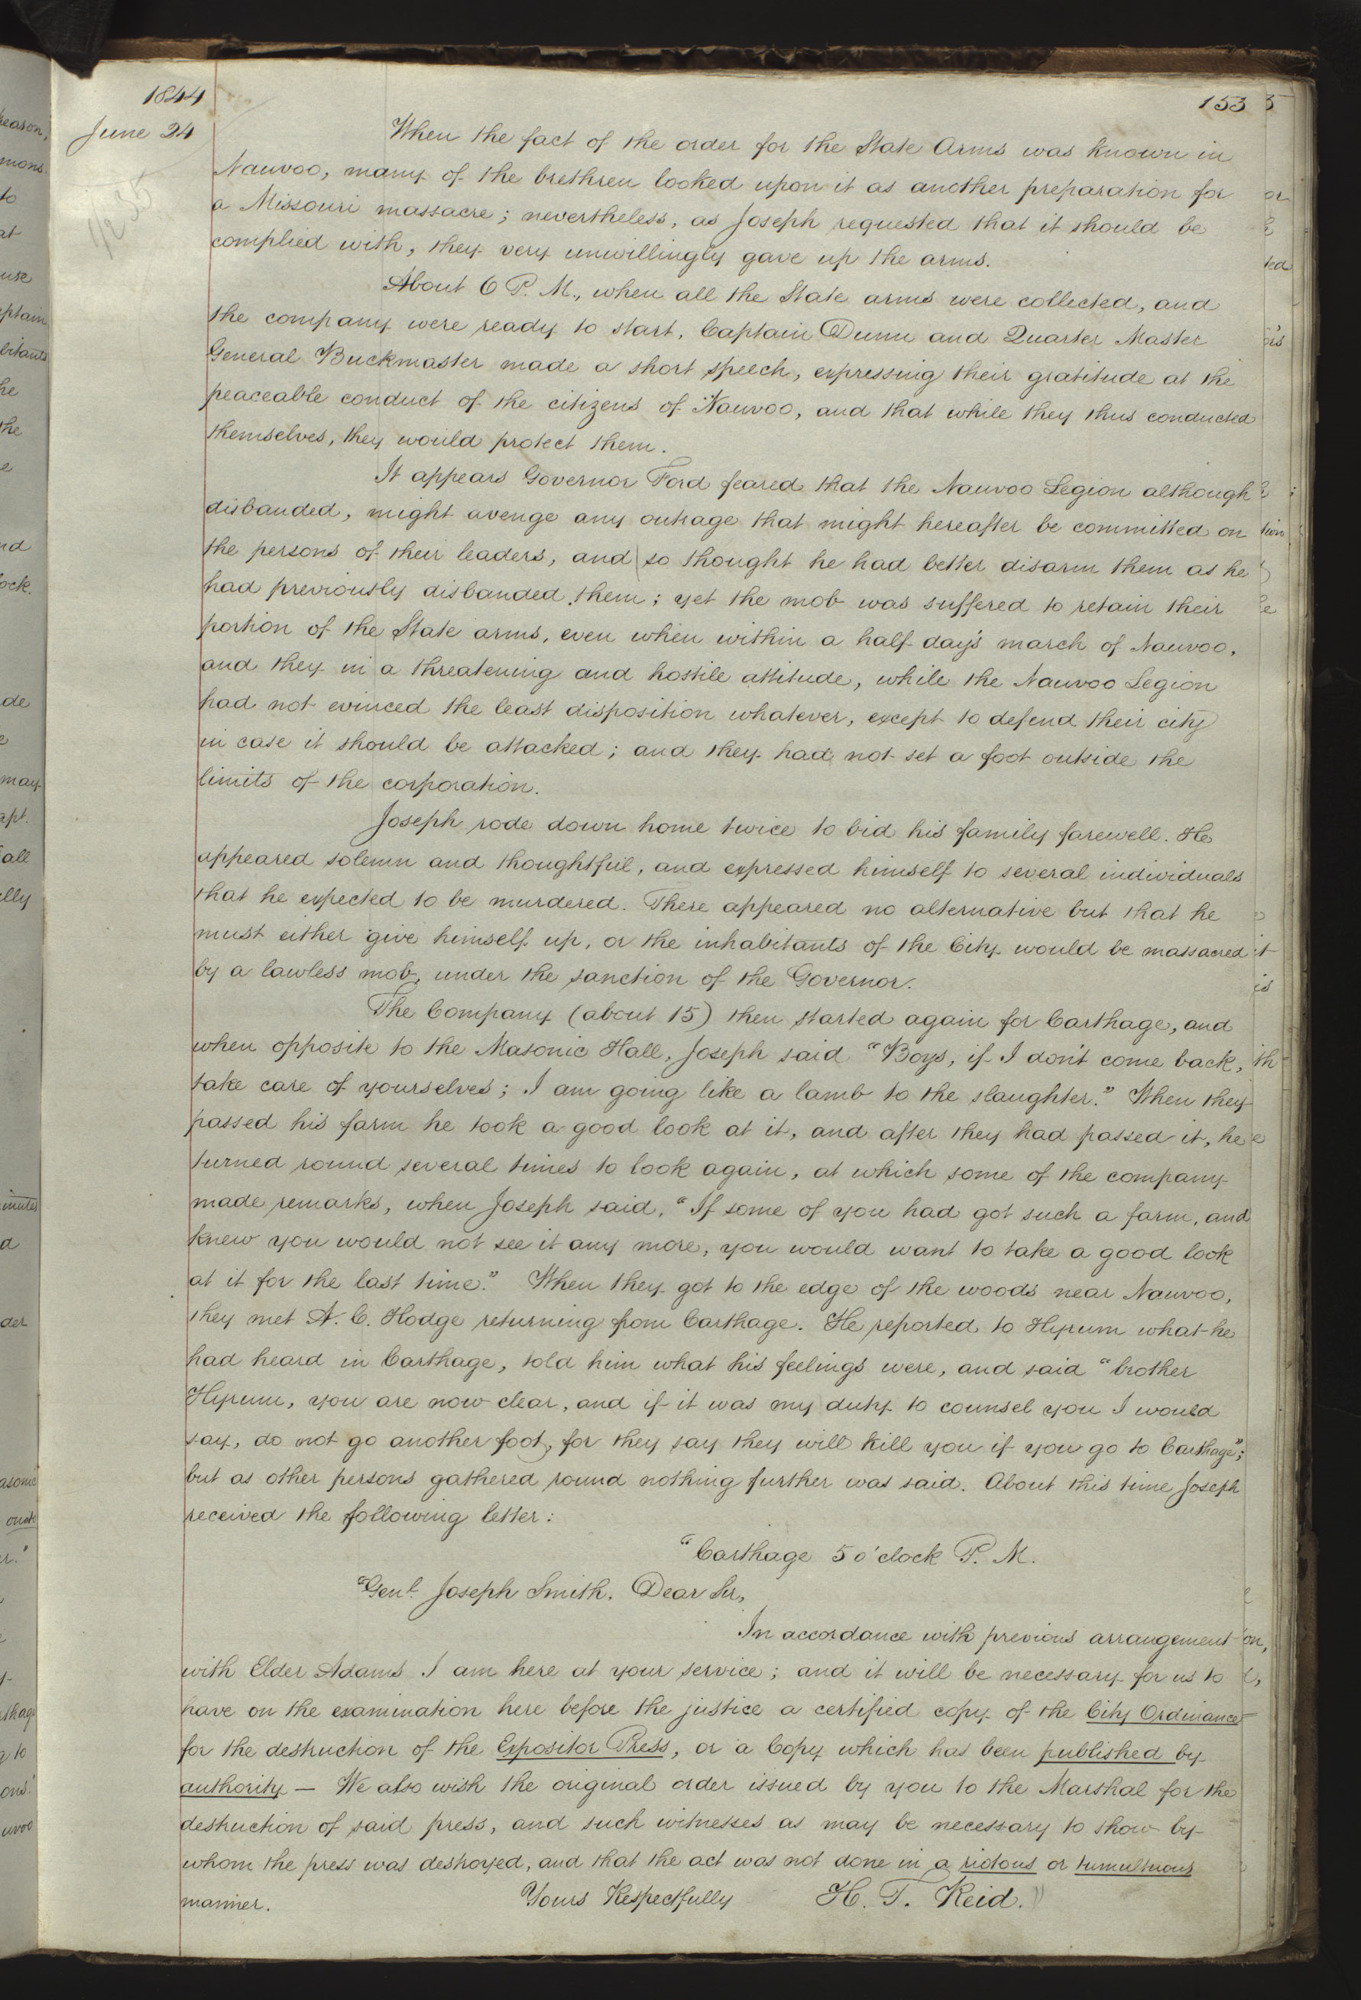 1844
153
June 24
When the fact of the order for the State Arms was known in
Nauvoo, many of the brethren looked upon it as another preparation for
a Missouri massacre; nevertheless, as Joseph requested that it should be
complied with, they very unwillingly gave up the arms.
About 6 P. M., when all the State arms were collected, and
the company were ready to start, Captain Dunn and Quarter Master
General Buckmaster made a short speech, expressing their gratitude at the
peaceable conduct of the citizens of Nauvoo, and that while they thus conducted
themselves, they would protect them.
It appears Governor Ford feared that the Nauvoo Legion although
disbanded, might avenge any outrage that might hereafter be committed on
the persons of their leaders, and so thought he had better disarm them as he
had previously disbanded them; yet the mob was suffered to retain their
portion of the State arms, even when within a half day's march of Nauvoo,
and they in a threatening and hostile attitude, while the Nauvoo Legion
had not evinced the least disposition whatever, except to defend their city
in case it should be attacked; and they had not set a foot outside the
limits of the corporation.
Joseph rode down home twice to bid his family farewell. He
appeared solemn and thoughtful, and expressed himself to several individuals
that he expected to be murdered. There appeared no alternative but that he
must either give himself up, or the inhabitants of the City would be massacred
by a lawless mob, under the sanction of the Governor.
The Company (about 15) then started again for Carthage, and
when opposite to the Masonic Hall, Joseph said "Boys, if I don't come back,
take care of yourselves; I am going like a lamb to the slaughter." When they
passed his farm he took a good look at it, and after they had passed it, he
turned round several times to look again, at which some of the company
made remarks, when Joseph said, "If some of you had got such a farm, and
knew you would not see it any more, you would want to take a good look
at it for the last time." When they got to the edge of the woods near Nauvoo,
they met A. C. Hodge returning from Carthage. He reported to Hyrum what he
had heard in Carthage, told him what his feelings were, and said "brother
Hyrum, you are now clear, and if it was my duty to counsel you I would
say, do not go another foot, for they say they will kill you if you go to Carthage";
but as other persons gathered round nothing further was said. About this time Joseph
received the following letter:
"Carthage 5 o'clock P. M.
"Genl. Joseph Smith. Dear Sir,
In accordance with previous arrangement
with Elder Adams I am here at your service; and it will be necessary for us to
have on the examination here before the justice a certified copy of the City Ordinance
for the destruction of the Expositor Press, or a Copy which has been published by
authority — We also wish the original order issued by you to the Marshal for the
destruction of said press, and such witnesses as may be necessary to show by
whom the press was destroyed, and that the act was not done in a riotous or tumultuous
manner. Yours Respectfully H. T. Reid."